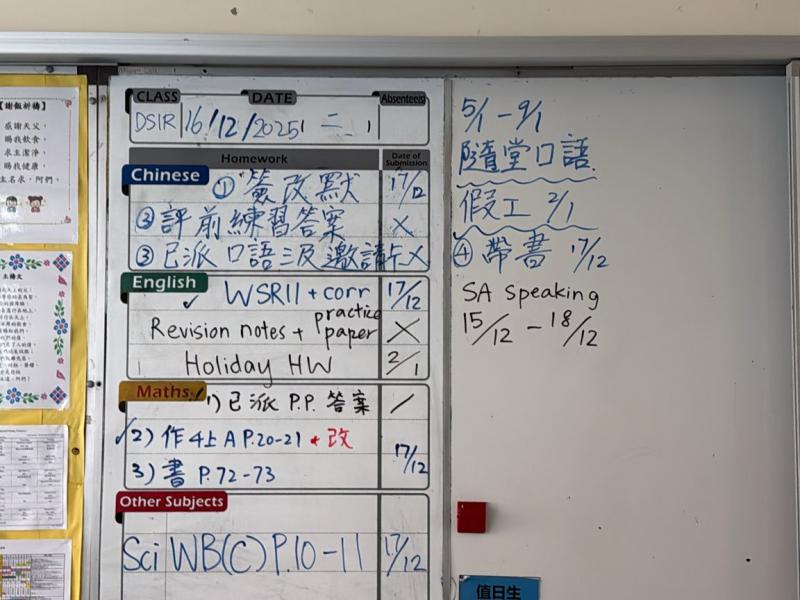 【謝飯祈禱】
感謝天父,
賜我飲食,
求主潔淨,
賜我健康,
主名求,阿們。
主禱文
CLASS DATE Absentees
DSIR 16/12/2025 二 1
Homework Date of Submission
Chinese ① 簽改默 17/12
② 評前練習答案 X
③ 已派口語三及邀請卡 X
English ✓ WSR11 + corr 17/12
Revision notes + practice paper X
Holiday HW 2/1
Maths 1) 已派 P.P. 答案 /
✓2) 作4上A P.20-21 + 改
3) 書 P.72-73 17/12
Other Subjects
Sci WB(C) P.10-11 17/12
5/1 - 9/1
隨堂口語
假工 2/1
④ 帶書 17/12
SA Speaking
15/12 - 18/12
值日生